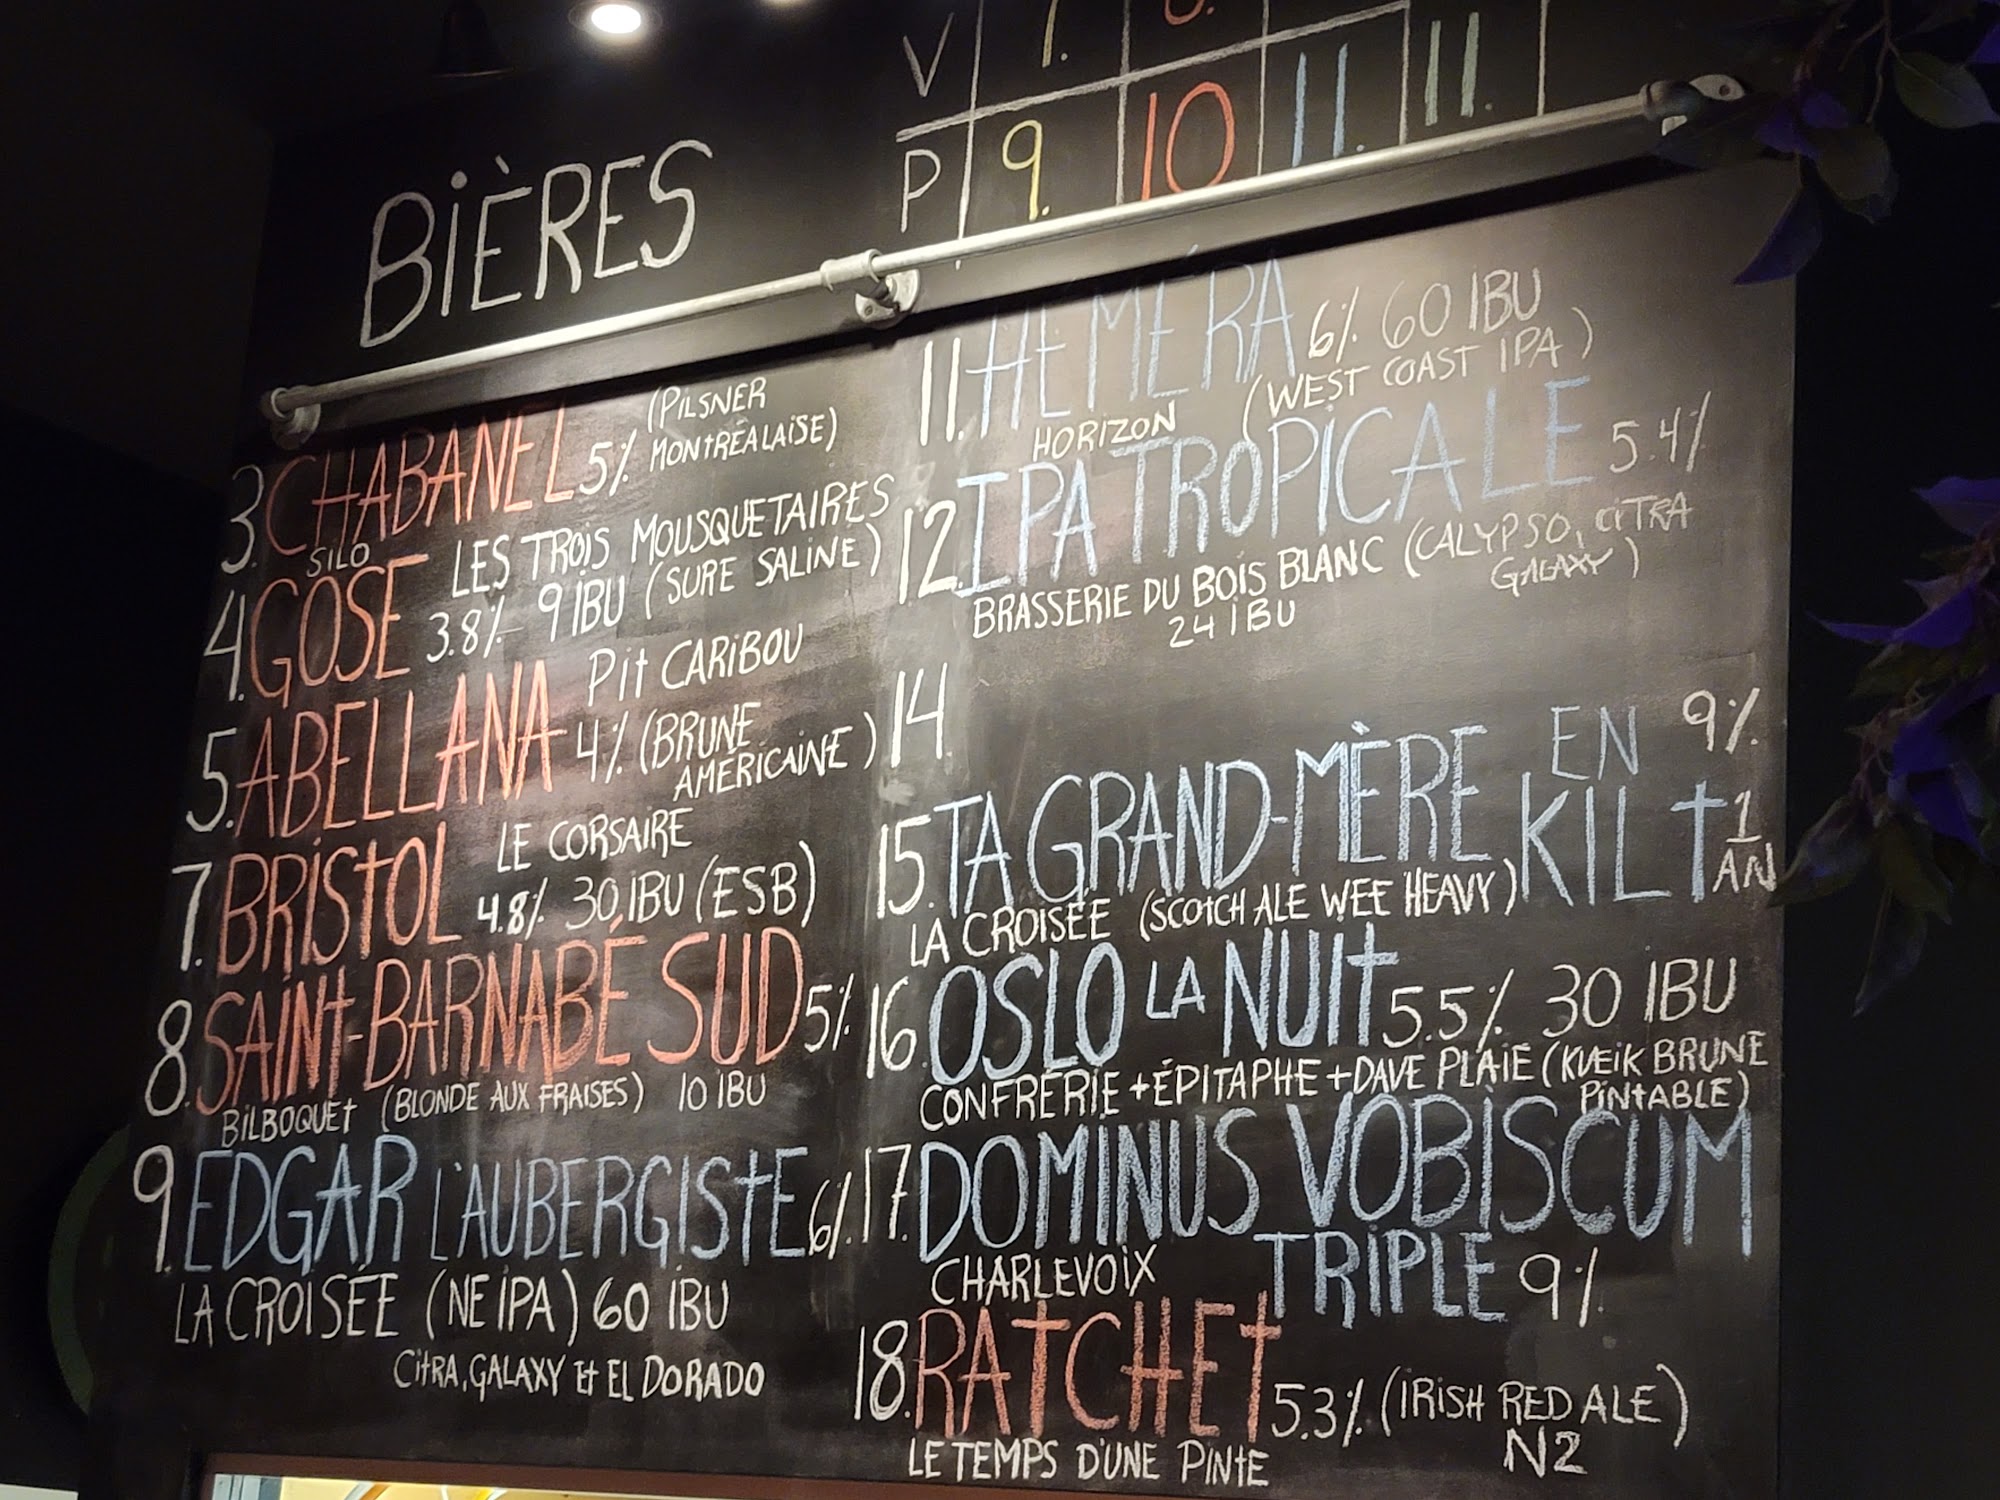 V 7. 8.
11.
P 9. 10 11.
BIÈRES
3. CHABANEL 5% (PILSNER
MONTRÉALAISE)
SILO
4. GOSE LES TROIS MOUSQUETAIRES
3.8% 9 IBU (SURE SALINE)
5. ABELLANA PIT CARIBOU
4% (BRUNE
AMÉRICAINE)
7. BRISTOL LE CORSAIRE
4.8% 30 IBU (ESB)
8. SAINT-BARNABÉ SUD 5%
BILBOQUET (BLONDE AUX FRAISES) 10 IBU
9. EDGAR L'AUBERGISTE 6%
LA CROISÉE (NEIPA) 60 IBU
CITRA, GALAXY ET EL DORADO
11. HÉMÉRA 6% 60 IBU
HORIZON (WEST COAST IPA)
12. IPA TROPICALE 5.4%
BRASSERIE DU BOIS BLANC (CALYPSO, CITRA
GALAXY)
24 IBU
14.
15. TA GRAND-MÈRE EN KILT 9%
1
AN
LA CROISÉE (SCOTCH ALE WEE HEAVY)
16. OSLO LA NUIT 5.5% 30 IBU
CONFRÉRIE + ÉPITAPHE + DAVE PLAIE (KVEIK BRUNE
PINTABLE)
17. DOMINUS VOBISCUM
CHARLEVOIX TRIPLE 9%
18. RATCHET 5.3% (IRISH RED ALE)
N2
LE TEMPS D'UNE PINTE